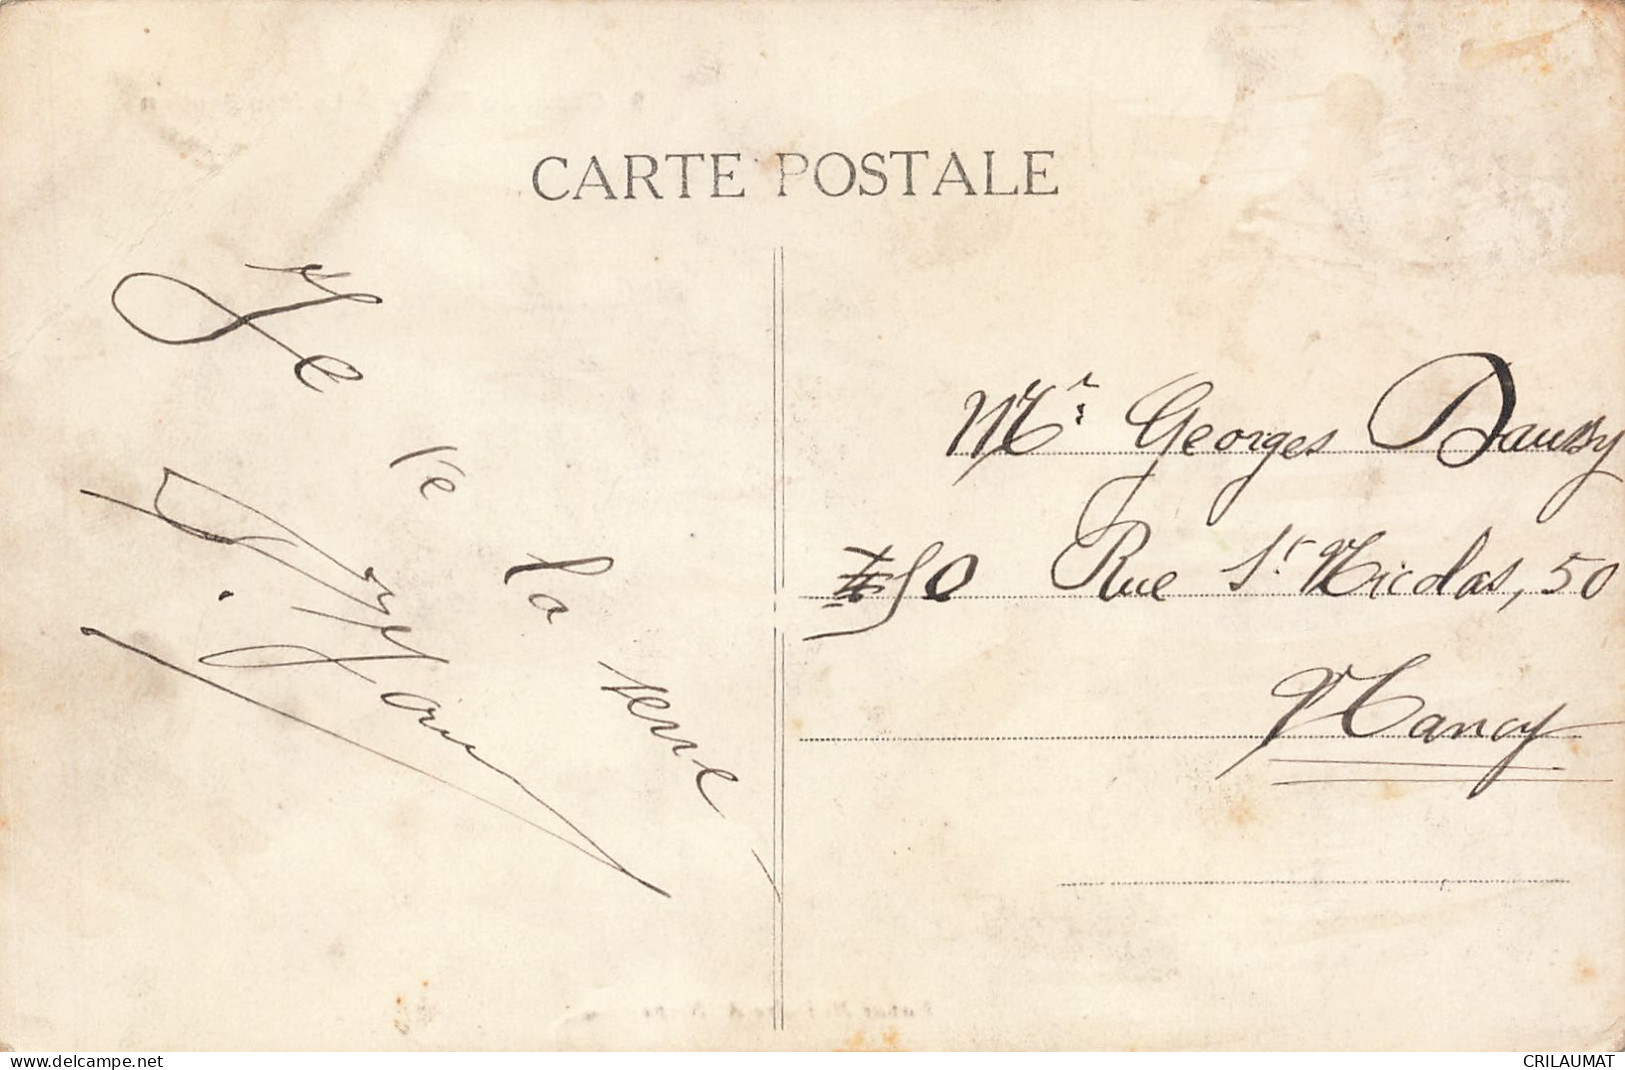 CARTE POSTALE
Je
te
la
serre
Mr Georges Daussy
50 Rue St Nicolas, 50
Nancy
www.delcampe.net
CRILAUMAT